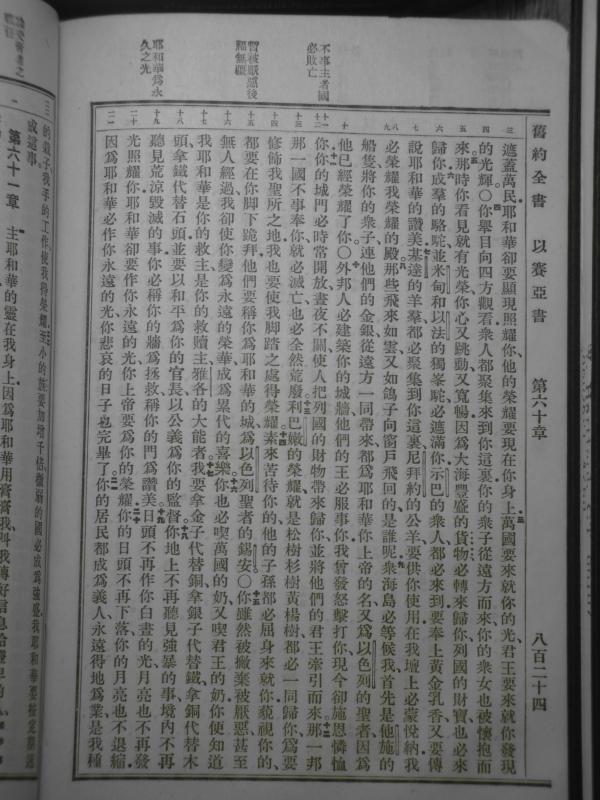 舊約全書 以賽亞書 第六十章 八百二十四
不事主者國必敗亡
暫被厭惡後福無疆
耶和華爲永久之光
遮蓋萬民耶和華卻要顯現照耀你他的榮耀要現在你身上萬國要來就你的光君王要來就你發現
的光輝○你舉目向四方觀看衆人都聚集來到你這裏你的衆子從遠方而來你的衆女也被懷抱而
來那時你看見就有光榮你心又跳動又寬暢因爲大海豐盛的貨物必轉來歸你列國的財寶也必來
歸你成羣的駱駝並米甸和以法的獨峯駝必遮滿你示巴的衆人都必來到要奉上黃金乳香又要傳
說耶和華的讚美基達的羊羣都必聚集到你這裏尼拜約的公羊要供你使用在我壇上必蒙悅納我
必榮耀我榮耀的殿那些飛來如雲又如鴿子向窗戶飛回的是誰呢衆海島必等候我首先是他施的
船隻將你的衆子連他們的金銀從遠方一同帶來都爲耶和華你上帝的名又爲以色列的聖者因爲
他已經榮耀了你○外邦人必建築你的城牆他們的王必服事你我曾發怒擊打你現今卻施恩憐恤
你你的城門必時常開放晝夜不關使人把列國的財物帶來歸你並將他們的君王牽引而來那一邦
那一國不事奉你就必滅亡也必全然荒廢利巴嫩的榮耀就是松樹杉樹黃楊樹都必一同歸你爲要
修飾我聖所之地我也要使我腳踏之處得榮耀素來苦待你的他的子孫都必屈身來就你藐視你的
都要在你腳下跪拜他們要稱你爲耶和華的城爲以色列聖者的錫安○你雖然被撇棄被厭惡甚至
無人經過我卻使你變爲永遠的榮華成爲累代的喜樂你也必喫萬國的奶又喫君王的奶你便知道
我耶和華是你的救主是你的救贖主雅各的大能者我要拿金子代替銅拿銀子代替鐵拿銅代替木
頭拿鐵代替石頭並要以和平爲你的官長以公義爲你的監督你地上不再聽見強暴的事境內不再
聽見荒涼毀滅的事你必稱你的牆爲拯救稱你的門爲讚美日頭不再作你白晝的光月亮也不再發
光照耀你耶和華卻要作你永遠的光你上帝要爲你的榮耀你的日頭不再下落你的月亮也不退縮
因爲耶和華必作你永遠的光你悲哀的日子也完畢了你的居民都成爲義人永遠得地爲業是我種
的栽子我手的工作使我得榮耀至小的族要加增千倍微弱的國必成爲強盛我耶和華要按定期速
成這事
第六十一章 主耶和華的靈在我身上因爲耶和華用膏膏我叫我傳好信息